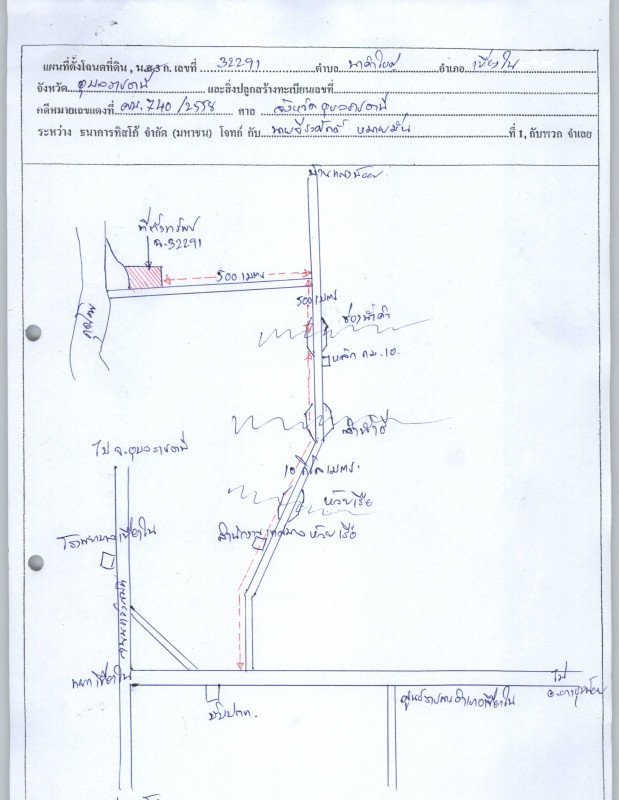 แผนที่ตั้งโฉนดที่ดิน, น.ส.3 ก. เลขที่ 32291 ตำบล นาคำใหญ่ อำเภอ เขื่องใน
จังหวัด อุบลราชธานี และสิ่งปลูกสร้างทะเบียนเลขที่
คดีหมายเลขแดงที่ ผบ.740/2558 ศาล จังหวัดอุบลราชธานี
ระหว่าง ธนาคารทิสโก้ จำกัด (มหาชน) โจทก์ กับ นายธีระศักดิ์ หมายมั่น ที่ 1, กับพวก จำเลย
ที่ตั้งทรัพย์
ฉ.32291
500 เมตร
500 เมตร
หลัก กม.10.
ลำน้ำชี
ไป จ.อุบลราชธานี
10 กิโลเมตร.
ห้วยเรือ
สำนักงานเทศบาล ห้วยเรือ
โรงพยาบาลเขื่องใน
ถนนแจ้งสนิท
แยกเขื่องใน
ไป
ปั๊มปตท.
ศูนย์ราชการอำเภอเขื่องใน